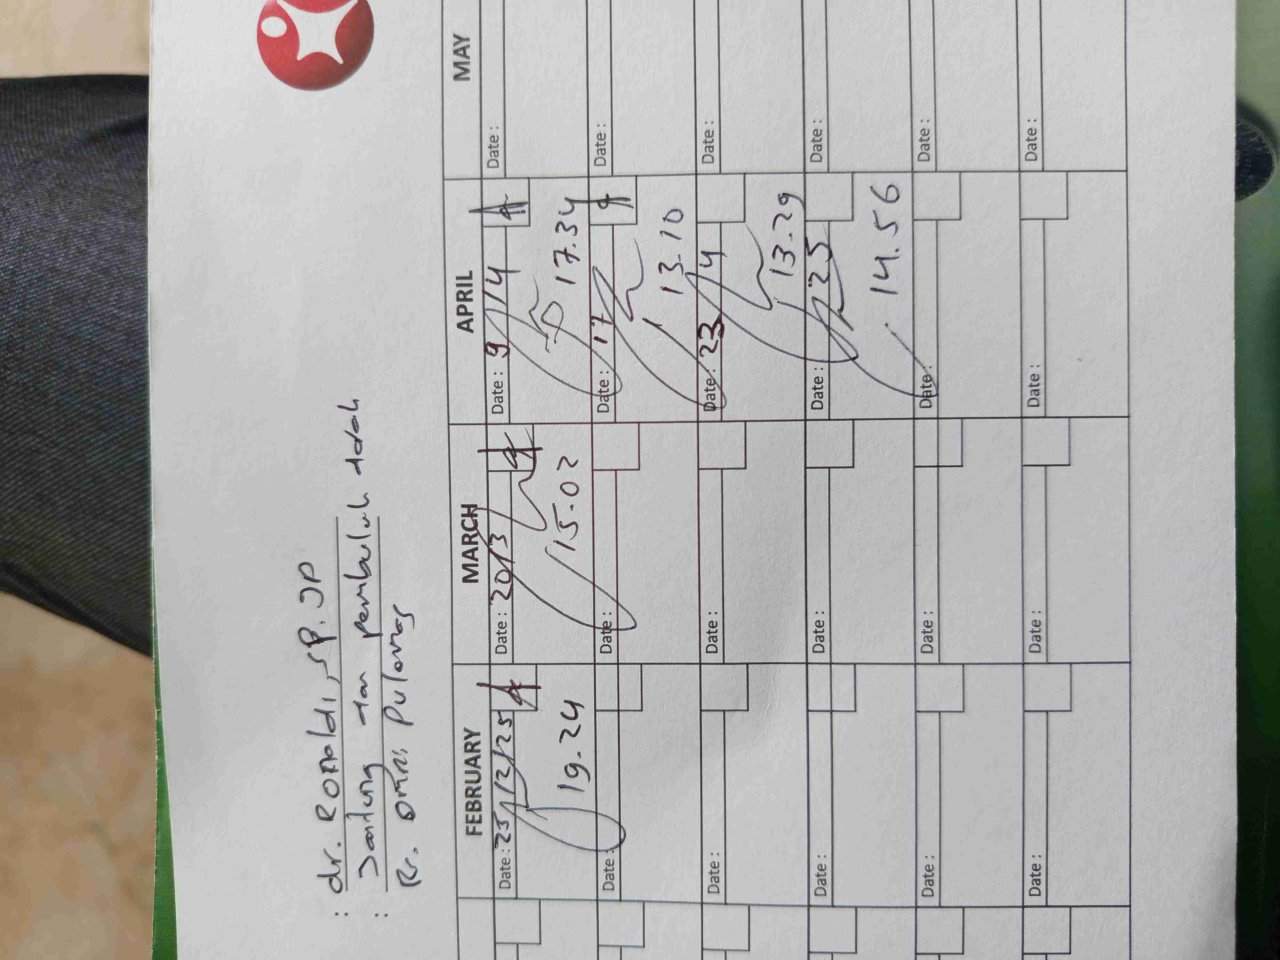 : dr. Ronaldi, SP. JP
: Jantung dan pembuluh darah
Rs. Omni Pulomas
FEBRUARY MARCH APRIL MAY
Date : 25/2/25 Date : 20/3 Date : 9/4 Date :
19.24 15.02 17.34
Date : Date : Date : 17 Date :
13.10
Date : Date : Date : 23/4 Date :
13.29
Date : Date : Date : 25 Date :
14.56
Date : Date : Date : Date :
Date : Date : Date : Date :